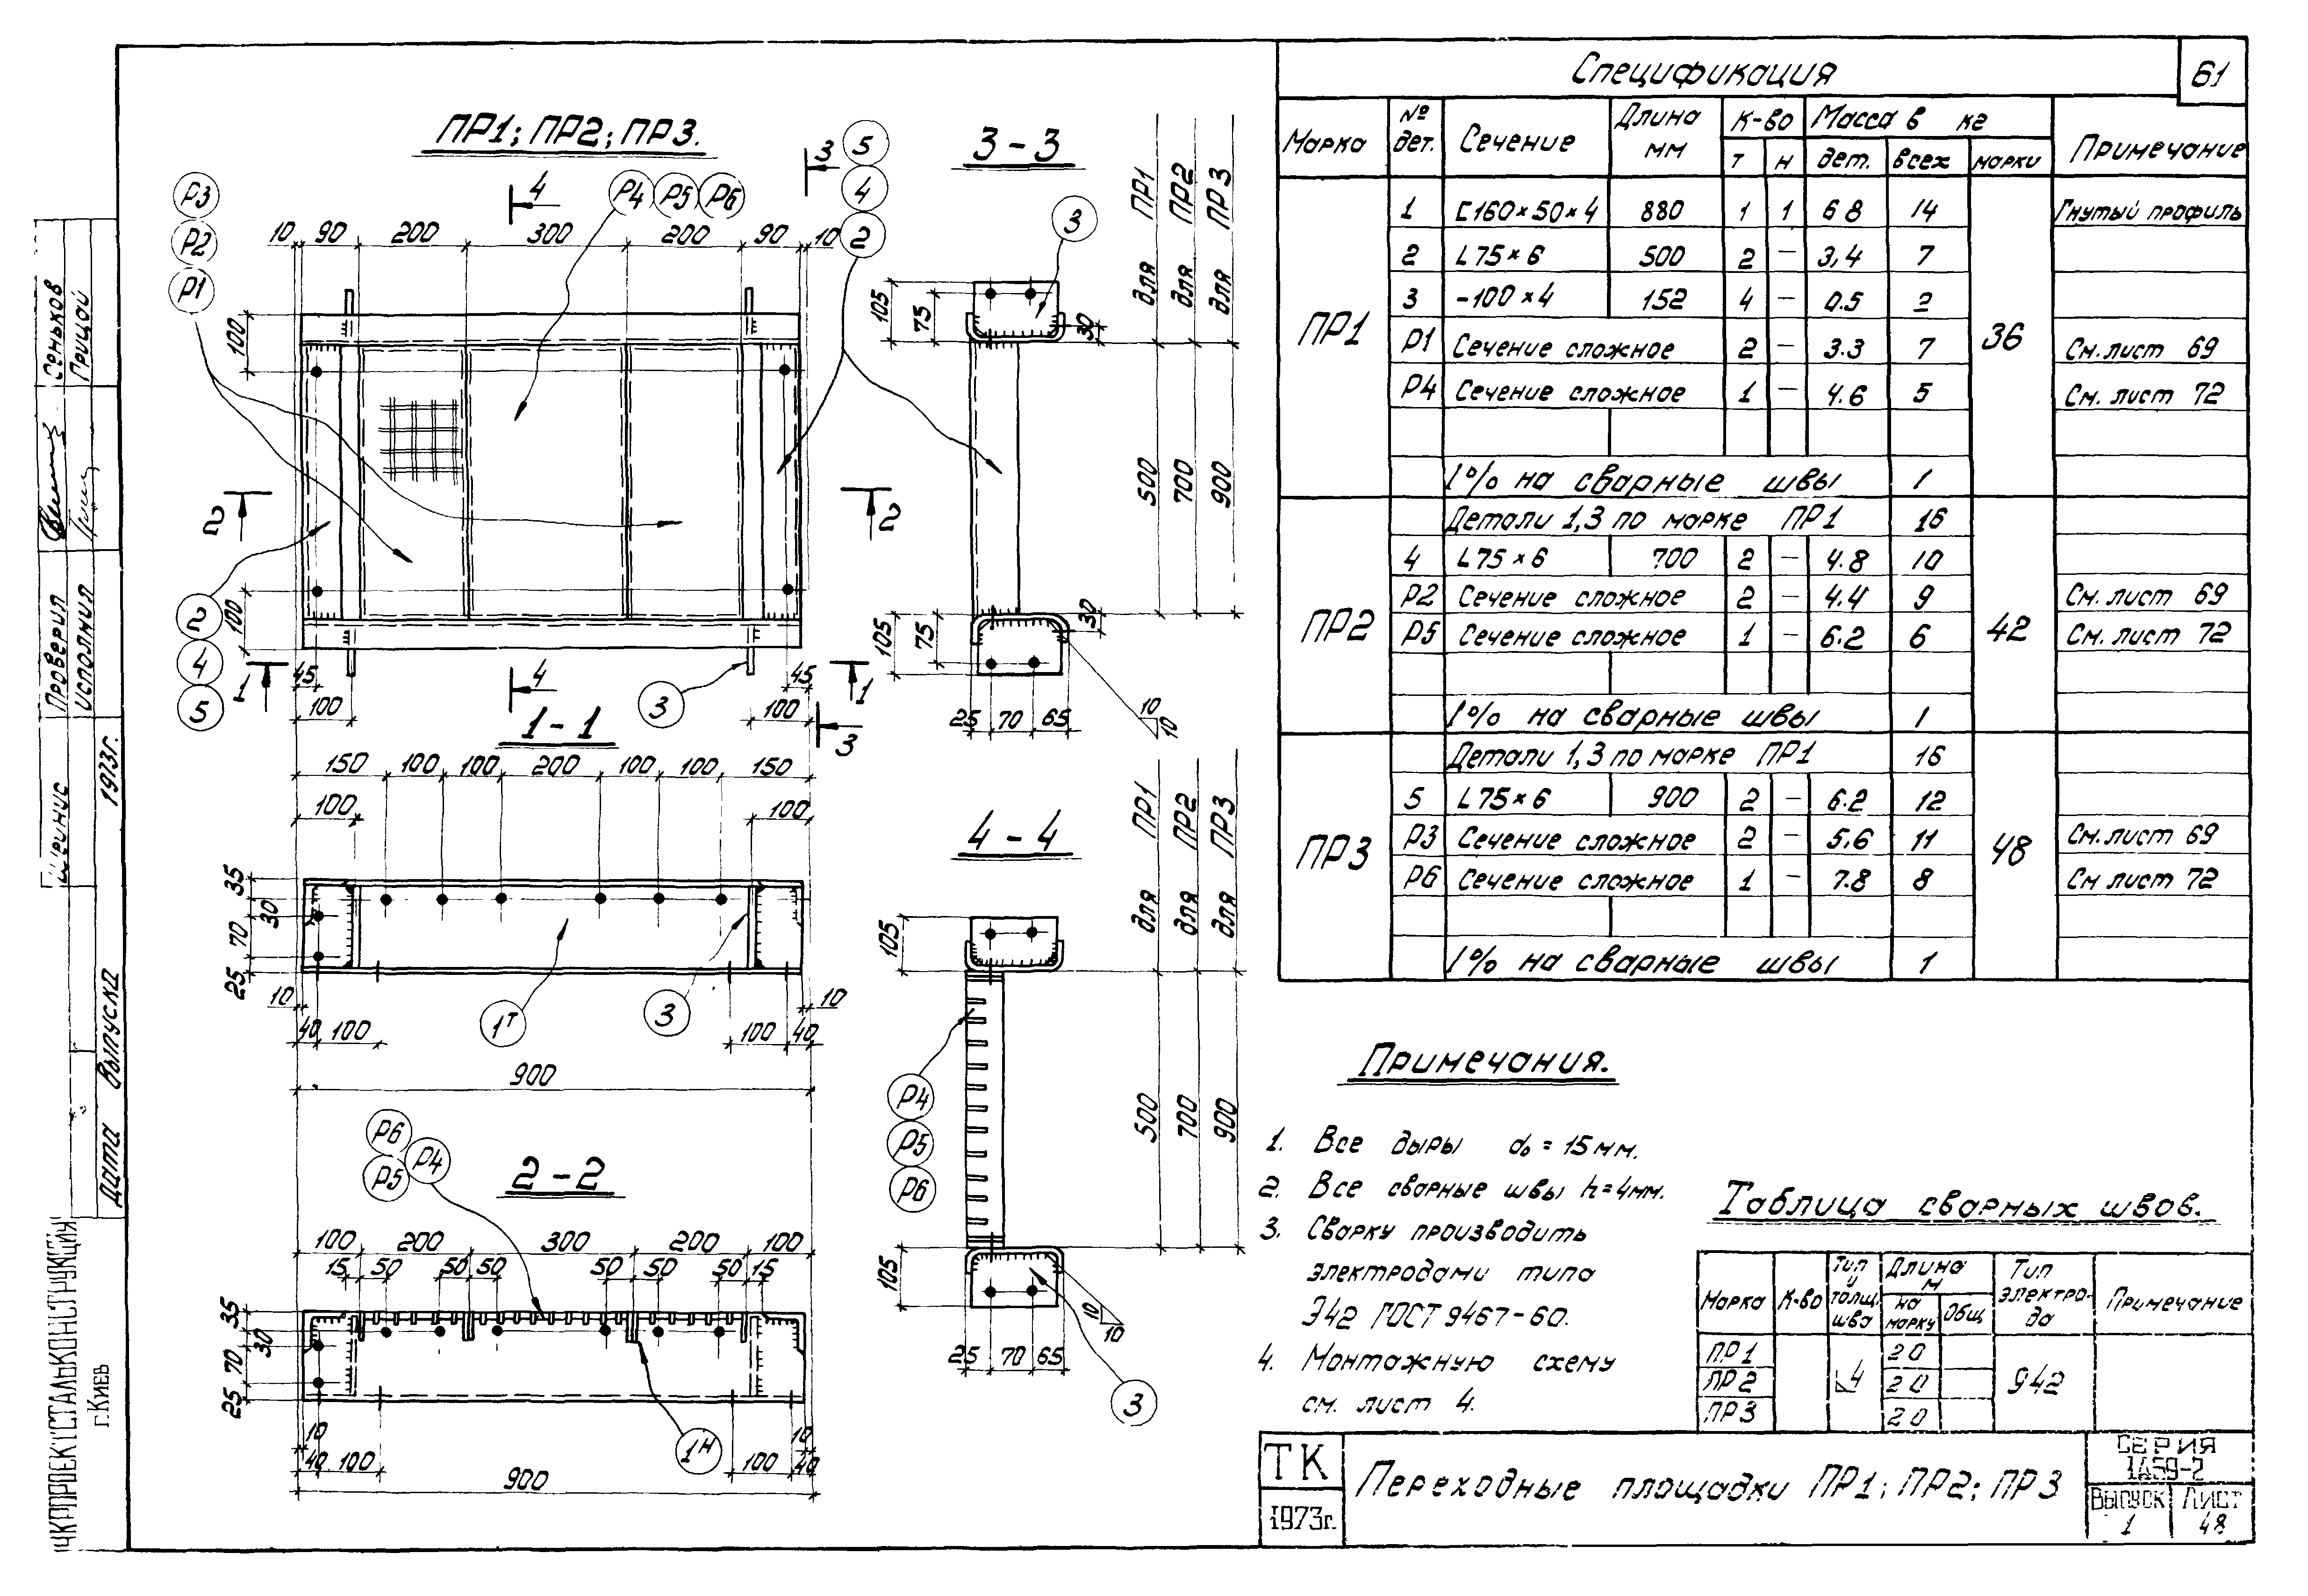 ПР1; ПР2; ПР3.
3 - 3
4 4
3 3
Р3 Р2 Р1
Р4 Р5 Р6
5 4 2
3
10 90 200 300 200 90 10
100
100
2 2
2 4 5
1 1
45 45
100 100
3
105 75 30
105 75 30
25 70 65
10 10
для ПР1 для ПР2 для ПР3
500 700 900
1 - 1
150 100 100 200 100 100 150
100 100
35 30 70 25
10 10
40 100 100 40
900
1т 3
4 - 4
для ПР1 для ПР2 для ПР3
105
500 700 900
Р4 Р5 Р6
105
25 70 65
10 10
3
2 - 2
Р6 Р5 Р4
100 200 300 200 100
15 50 50 50 50 50 50 15
35 30 70 25
10 10
40 100 100 40
900
1н
61
Спецификация
Марка № дет. Сечение Длина мм К-во Масса в кг Примечание
т н дет. всех марки
ПР1 36
1 [160×50×4 880 1 1 6 8 14 Гнутый профиль
2 L75×6 500 2 - 3,4 7
3 -100×4 152 4 - 0.5 2
Р1 Сечение сложное 2 - 3.3 7 См. лист 69
Р4 Сечение сложное 1 - 4.6 5 См. лист 72
1% на сварные швы 1
ПР2 42
Детали 1,3 по марке ПР1 16
4 L75×6 700 2 - 4.8 10
Р2 Сечение сложное 2 - 4.4 9 См. лист 69
Р5 Сечение сложное 1 - 6.2 6 См. лист 72
1% на сварные швы 1
ПР3 48
Детали 1,3 по марке ПР1 16
5 L75×6 900 2 - 6.2 12
Р3 Сечение сложное 2 - 5,6 11 См. лист 69
Р6 Сечение сложное 1 - 7.8 8 См лист 72
1% на сварные швы 1
Примечания.
1. Все дыры d₀ = 15 мм.
2. Все сварные швы h = 4мм.
3. Сварку производить
электродами типа
Э42 ГОСТ 9467-60.
4. Монтажную схему
см. лист 4.
Таблица сварных швов.
Марка К-во Тип и толщ. шва Длина м Тип электро-да Примечание
на марку Общ
ПР1 20
ПР2 4 20 Э42
ПР3 20
ТК
1973г.
Переходные площадки ПР1; ПР2; ПР3
СЕРИЯ
Выпуск Лист
1 48
Сеньков
Грицай
Проверил
Исполнил
1973г.
Дата выпуска
УКРПРОЕКТСТАЛЬКОНСТРУКЦИЯ
г.Киев